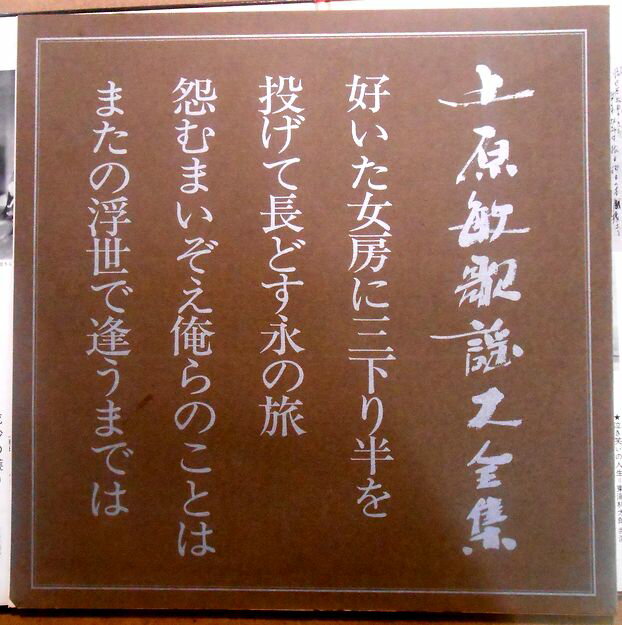 上原敏歌謡大全集
好いた女房に三下り半を
投げて長どす永の旅
怨むまいぞえ俺らのことは
またの浮世で逢うまでは